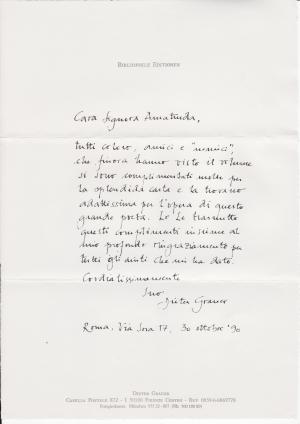 BIBLIOPHILE EDITIONEN
Cara Signora Amatruda,
tutti coloro, amici e "nemici",
che finora hanno visto il volume
si sono complimentati molto per
la splendida carta e la trovano
adattissima per l'opera di questo
grande poeta. Io Le trasmetto
questi complimenti insieme al
mio profondo ringraziamento per
tutti gli aiuti che mi ha dato.
Cordialissimamente
Suo
Dieter Grauer
Roma, Via Sora 17, 30 ottobre '90
DIETER GRAUER
CASELLA POSTALE 872 - I 50100 FIRENZE CENTRO